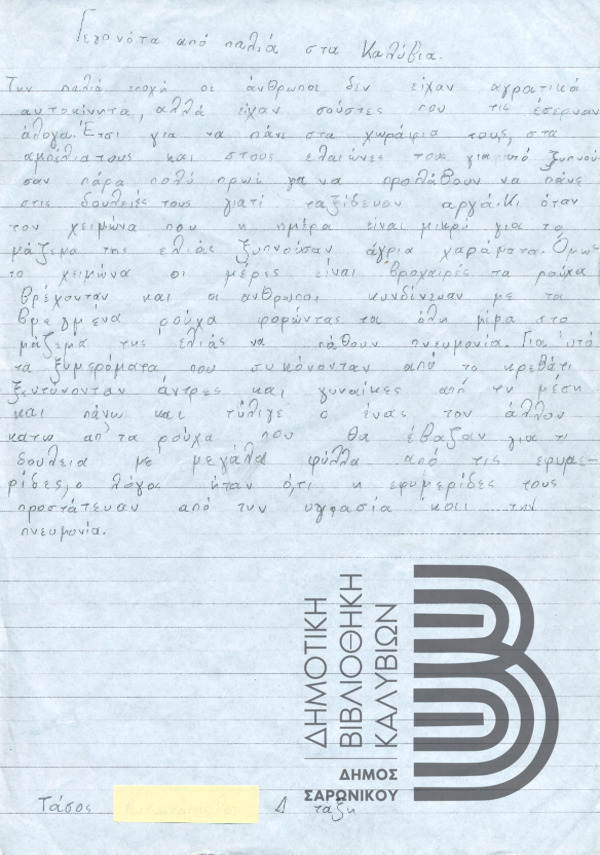 Γεγονότα από παλιά στα Καλύβια.
Την παλιά εποχή οι άνθρωποι δεν είχαν αγρατικά
αυτοκίνητα, αλλά είχαν σούστες που τις έσερναν
άλογα. Έτσι για να πάνε στα χωράφια τους, στα
αμπέλια τους και στους ελαιώνες τους για αυτό ξυπνού-
σαν πάρα πολύ πρωί για να προλάβουν να πάνε
στις δουλειές τους γιατί ταξίδευαν αργά. Κι όταν
τον χειμώνα που η ημέρα είναι μικρή για το
μάζεμα της ελιάς ξυπνούσαν άγρια χαράματα. Όμως
το χειμώνα οι μέρες είναι βροχαιρές τα ρούχα
βρέχονταν και οι άνθρωποι κυνδίνευαν με τα
βρεγμένα ρούχα φορώντας τα όλη μέρα στο
μάζεμα της ελιάς να πάθουν πνευμονία. Για αυτό
τα ξυμερόματα που συκόνονταν από το κρεβάτι
ξεντύνονταν άντρες και γυναίκες από τη μέση
και πάνω και τύλιγε ο ένας τον άλλον
κατω απ' τα ρούχα που θα έβαζαν για τι
δουλεια με μεγάλα φύλλα από τις εφυμε-
ρίδες, ο λόγος ήταν ό,τι η εφυμερίδες τους
προστάτευαν από την υγρασία και την
πνευμονία.
ΔΗΜΟΤΙΚΗ
ΒΙΒΛΙΟΘΗΚΗ
ΚΑΛΥΒΙΩΝ
ΔΗΜΟΣ
ΣΑΡΩΝΙΚΟΥ
Τάσος Δ ταξη